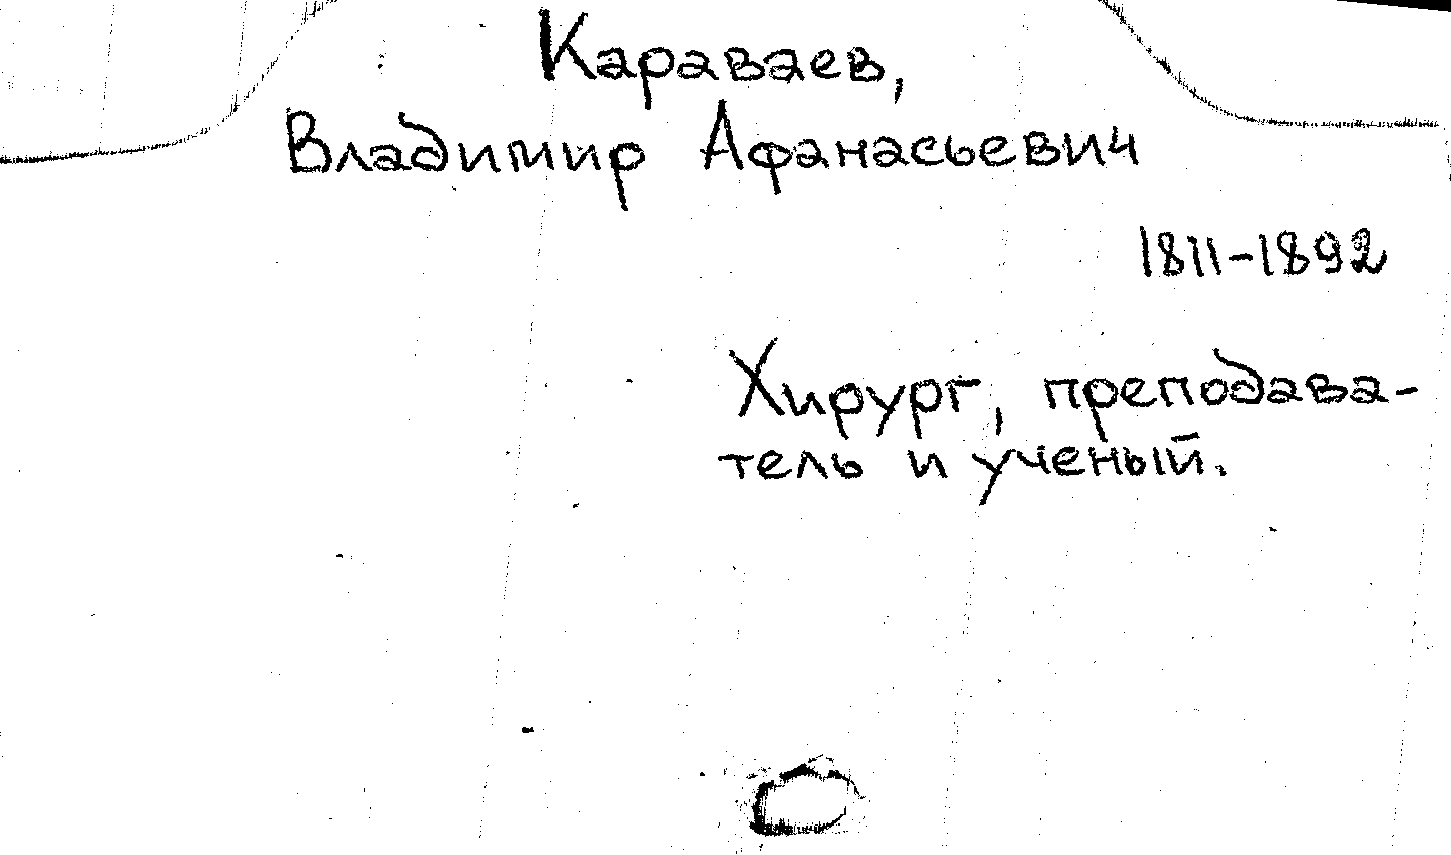 Караваев,
Владимир Афанасьевич
1811-1892
Хирург, преподава-
тель и ученый.